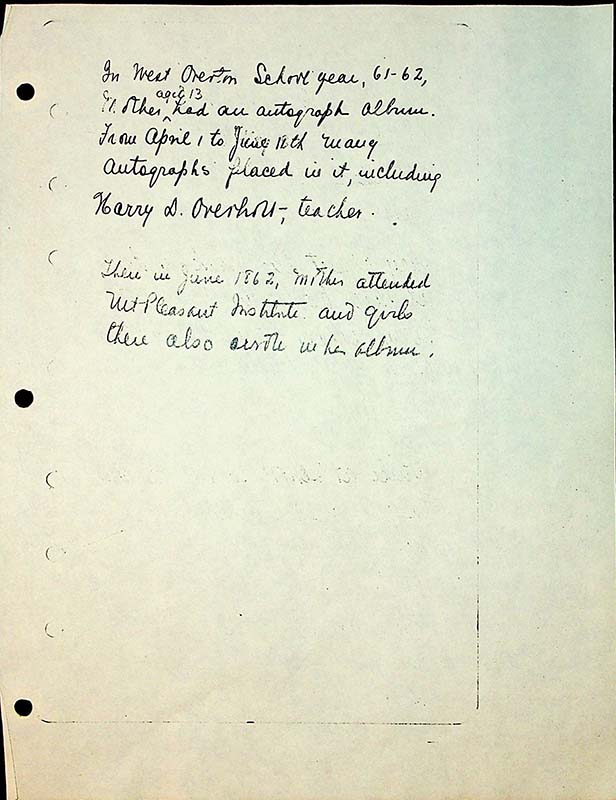 In West Overton School year, 61-62,
Mother aged 13 had an autograph album.
From April 1 to June 18th many
autographs placed in it, including
Harry D. Overholt, teacher.
Then in June 1862, Mother attended
Mt Pleasant Institute and girls
there also wrote in her album.